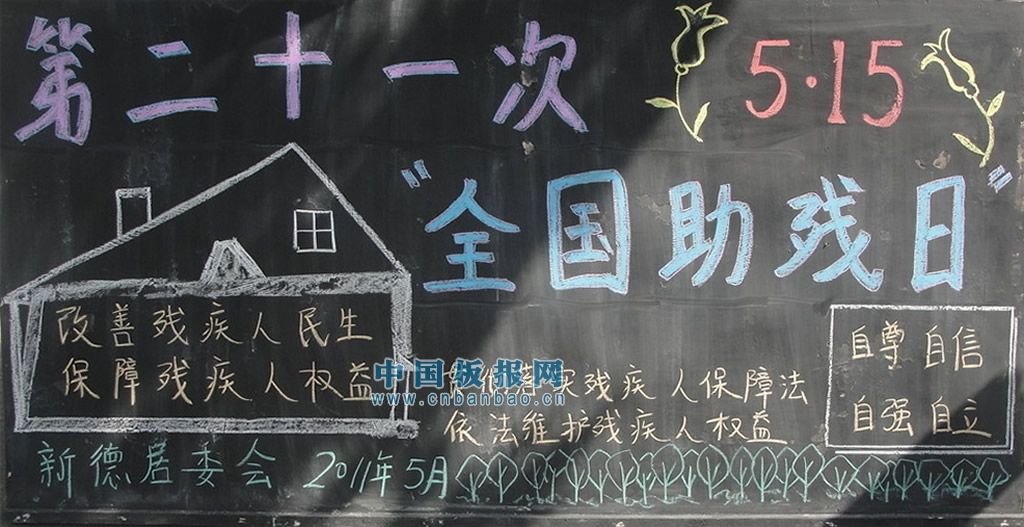 第二十一次 5·15
"全国助残日"
改善残疾人民生
保障残疾人权益
实残疾人保障法
依法维护残疾人权益
自尊 自信
自强 自立
新德居委会 2011年5月
中国板报网
www.cnbanbao.cn